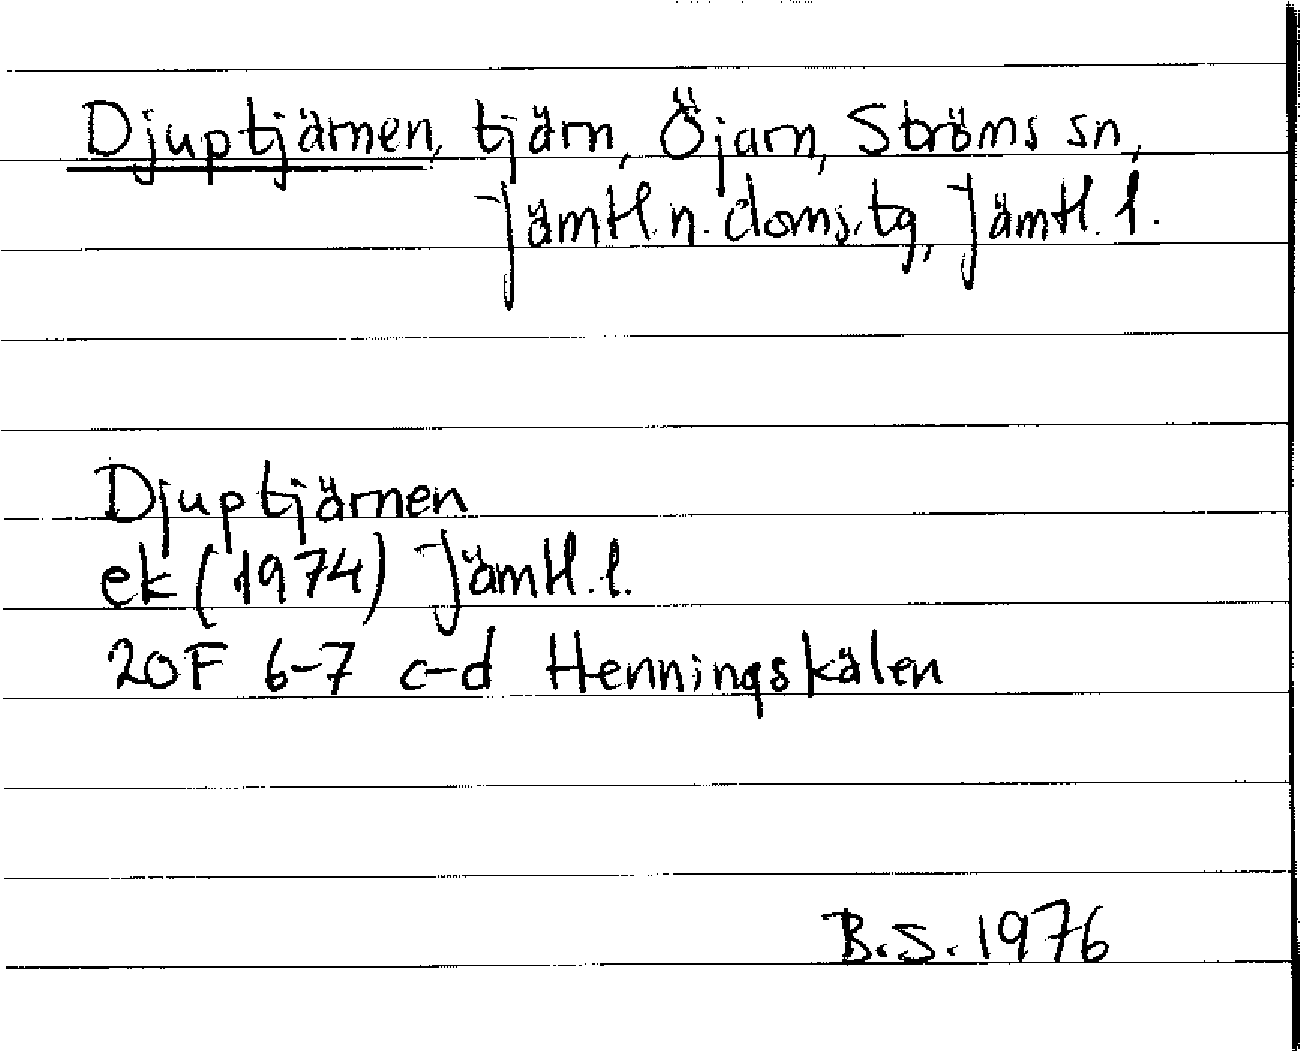 Djuptjärnen, tjärn, Öjarn, Ströms sn,
Jämtl. n. doms. tg, Jämtl. l.
Djuptjärnen
ek (1974) Jämtl. l.
20F 6-7 c-d Henningskälen
B.S. 1976